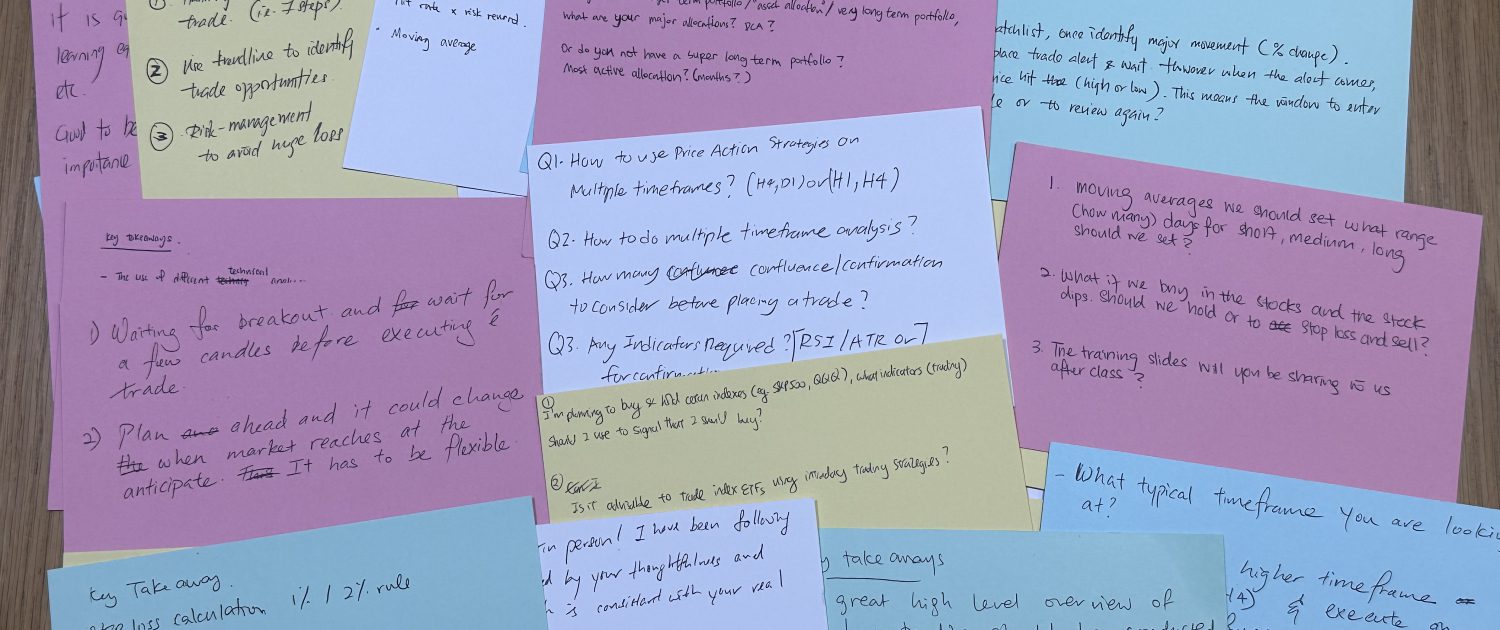 it is
learning
etc.
Good to be
importance
trade. (ie. 7 steps).
② Use trendline to identify
trade opportunities.
③ Risk-management
to avoid huge loss
rate x risk reward.
• Moving average
term portfolio / "asset allocation" / very long term portfolio,
what are your major allocations? DCA?
Or do you not have a super long term portfolio?
Most active allocation? (months?)
atchlist, once identify major movement (% change).
place trade alert & wait. However when the alert comes,
ice hit the (high or low). This means the window to enter
e or to review again?
Q1. How to use Price Action Strategies on
Multiple timeframes? (H4,D1) or (H1, H4)
Q2. How to do multiple timeframe analysis?
Q3. How many confluence confluence/confirmation
to consider before placing a trade?
Q3. Any Indicators Required? [RSI / ATR or]
for confirmati
1. moving averages we should set what range
(how many) days for short, medium, long
should we set?
2. What if we buy in the stocks and the stock
dips. Should we hold or to stop loss and sell?
3. The training slides will you be sharing to us
after class?
key takeaways.
- The use of different technical
1) Waiting for breakout and for wait for
a few candles before executing
trade.
2) Plan and ahead and it could change
the when market reaches at the
anticipate. It has to be flexible.
①
I'm planning to buy & hold certain indexes (eg. S&P500, QQQ), what indicators (trading)
should I use to signal that I should buy?
②
Is it advisable to trade index ETFs using intraday trading strategies?
- What typical timeframe you are looki
at?
higher timeframe
& execute on
Key Take away.
loss calculation 1% / 2% rule
in person! I have been following
d by your thoughtfulness and
h is consistant with your real
take aways
great high level overview of